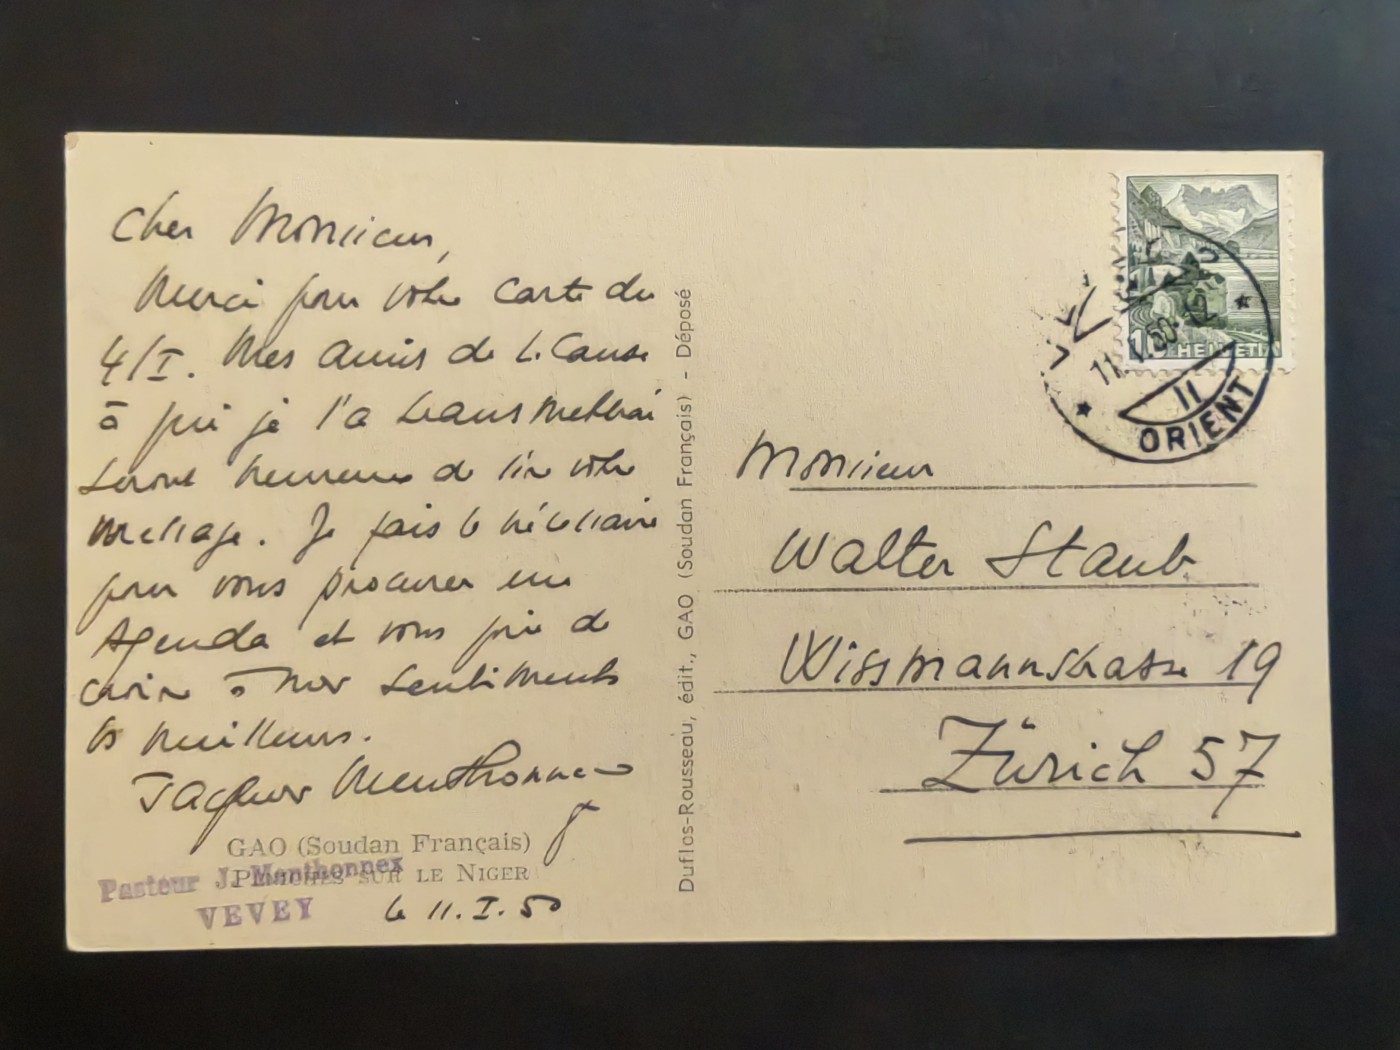 Cher Monsieur,
Merci pour votre carte du
4/I. Mes amis de la Cause
à qui je l'a transmettrai
seront heureux de lire votre
message. Je fais le nécessaire
pour vous procurer un
Agenda et vous prie de
croire à nos sentiments
les meilleurs.
Jacques Menthonnex
GAO (Soudan Français)
PÉNICHES SUR LE NIGER
Pasteur J. Menthonnex
VEVEY
le 11.I.50
Duflos-Rousseau, édit., GAO (Soudan Français) - Déposé
10 HELVETIA
VEVEY
11.I.50-12
II
ORIENT
Monsieur
Walter Staub
Wissmannstrasse 19
Zürich 57